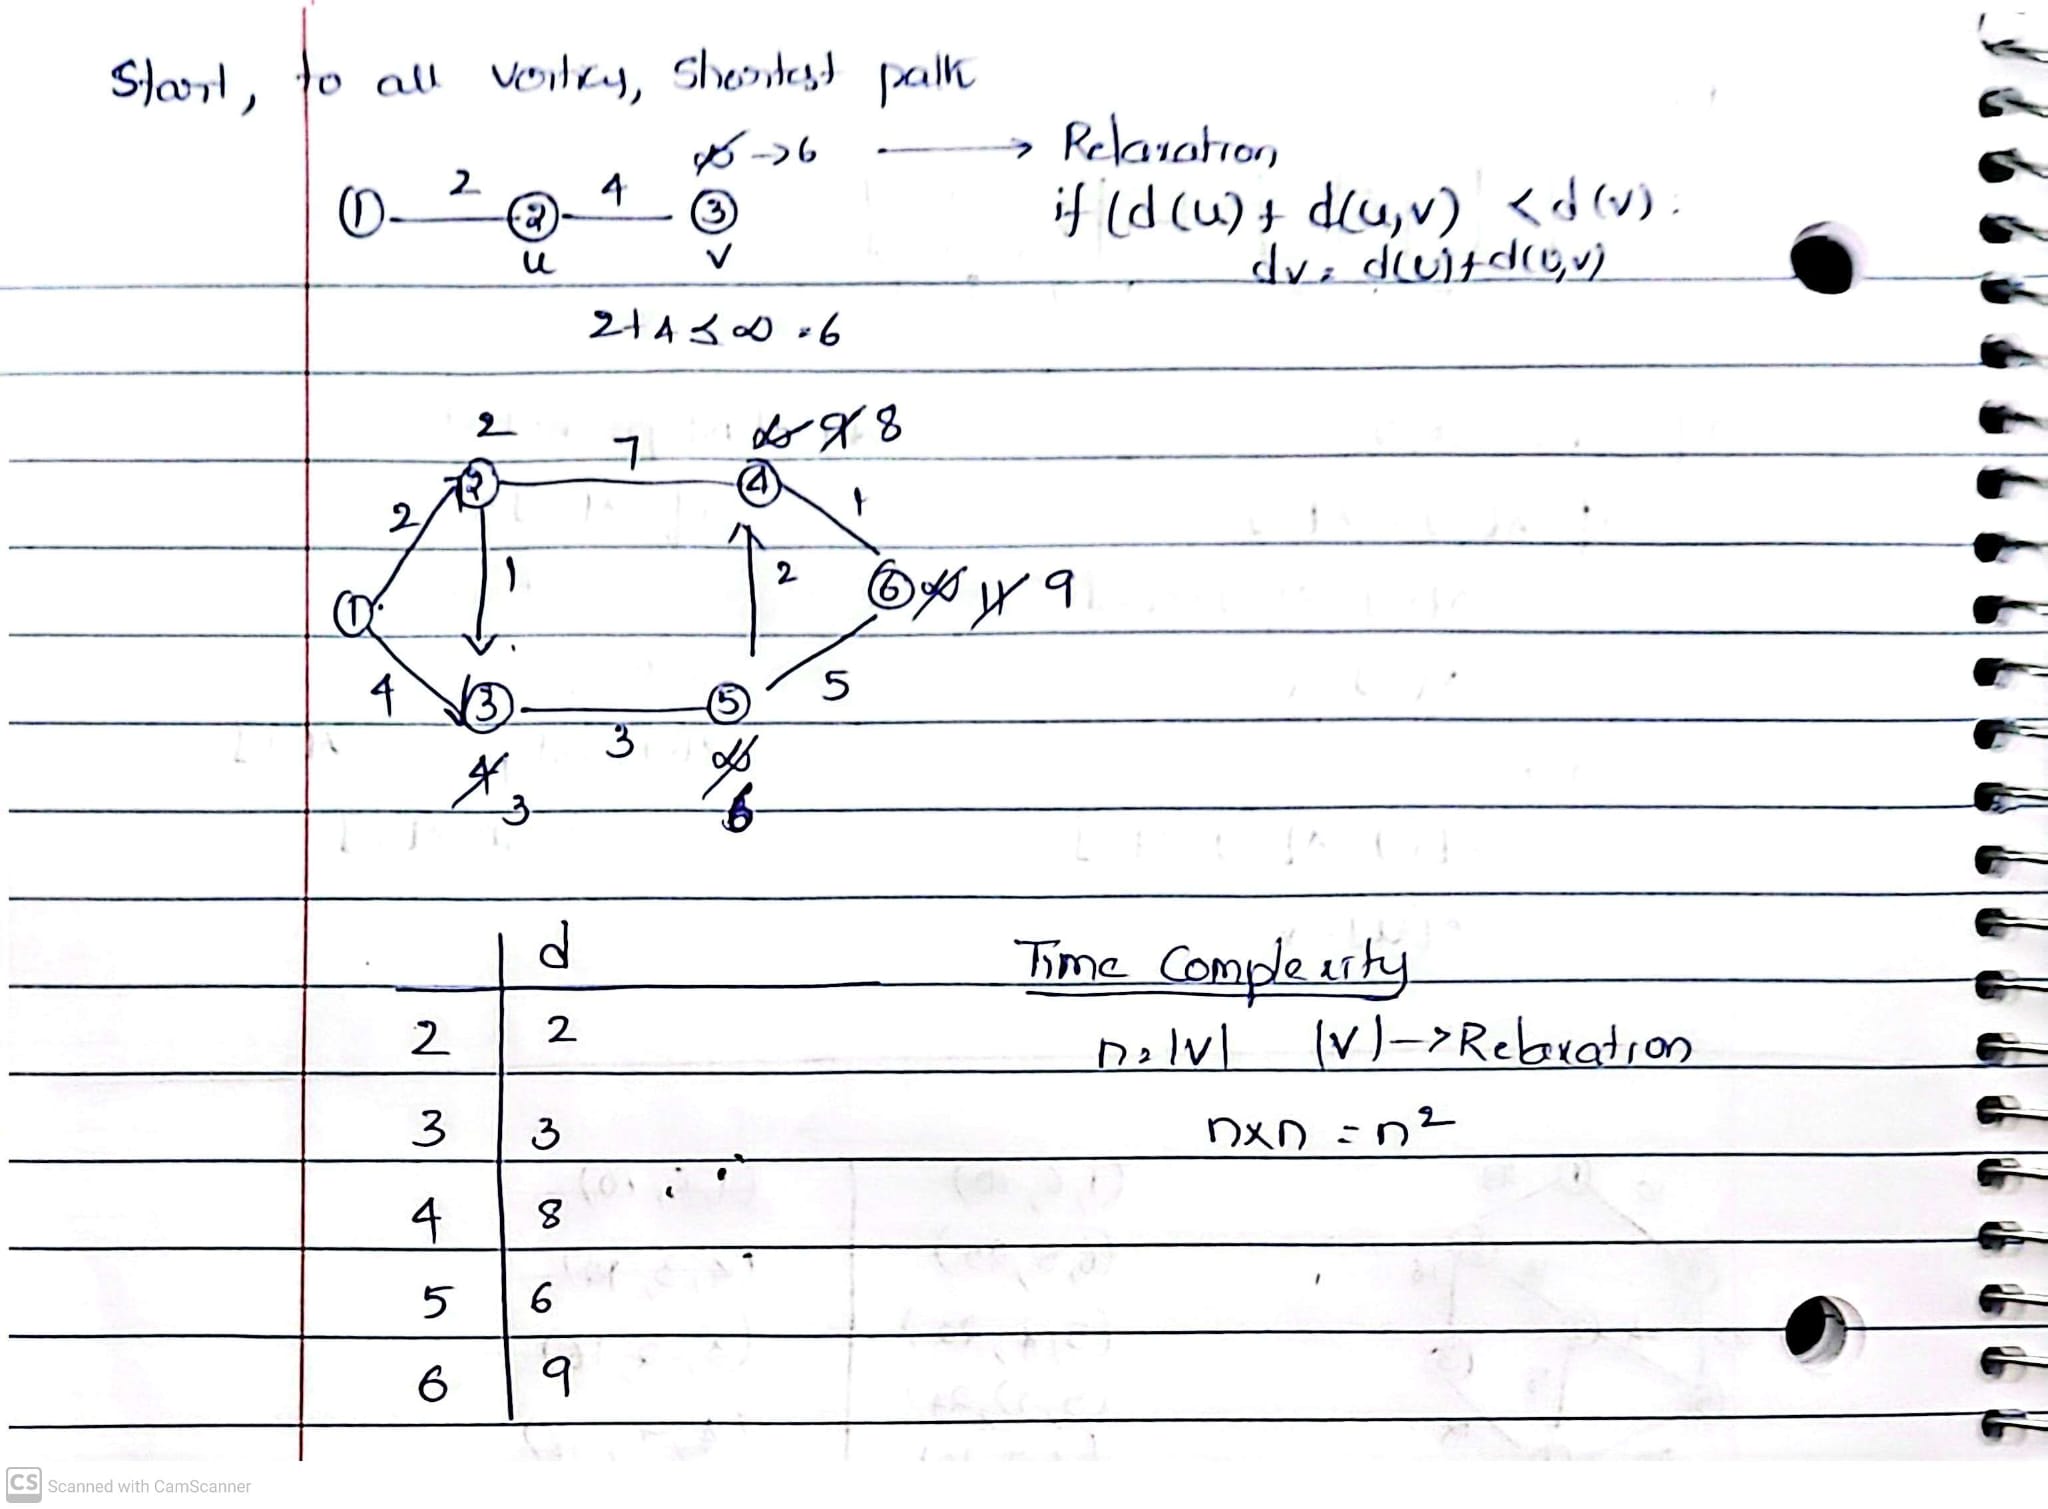 Start, to all vertices, Shortest path
∞ → 6 ⟶ Relaxation
1 2 2 4 3 if (d(u) + d(u,v) < d(v):
u v dv = d(u)+d(u,v)
2+4 < ∞ = 6
2 7 ∞ 9 8
2 4
2 1
1 2
1 6 ∞ 11 9
4 3 5 5
3
4 ∞
3 6
d Time Complexity
2 2 n=|v| |v| → Relaxation
3 3 n×n = n²
4 8
5 6
6 9
CS Scanned with CamScanner